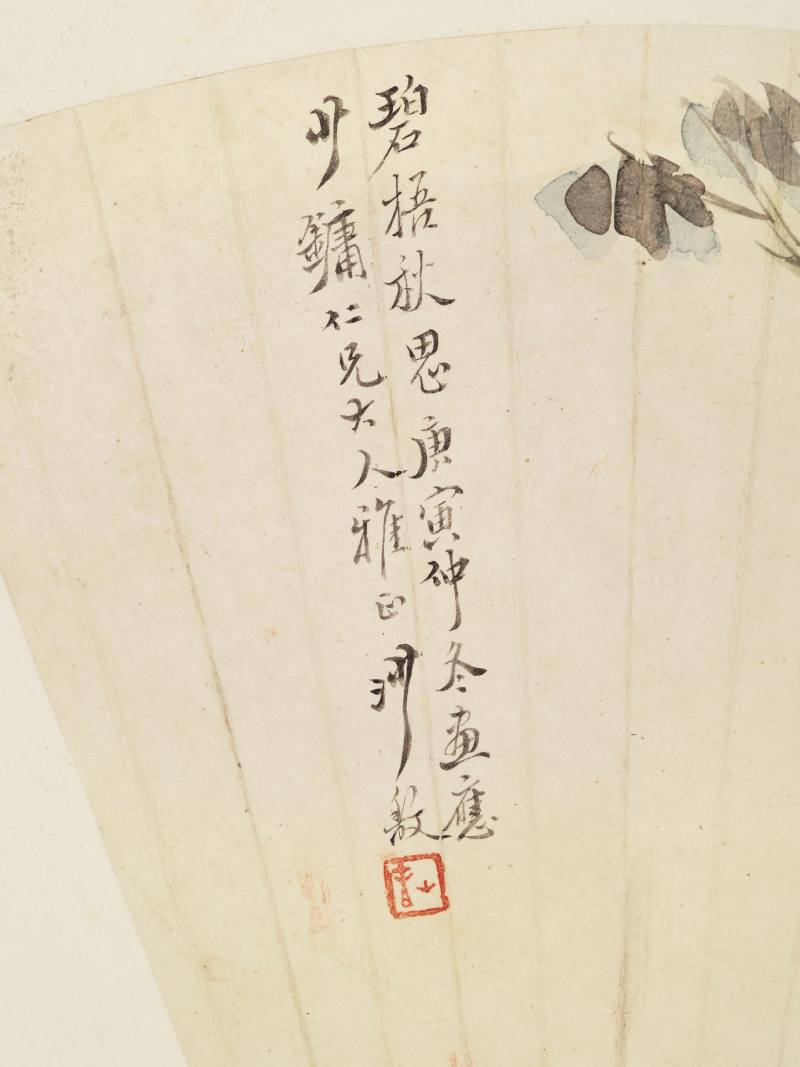 碧梧秋思庚寅仲冬畫應
少鏞仁兄大人雅正 沙馥